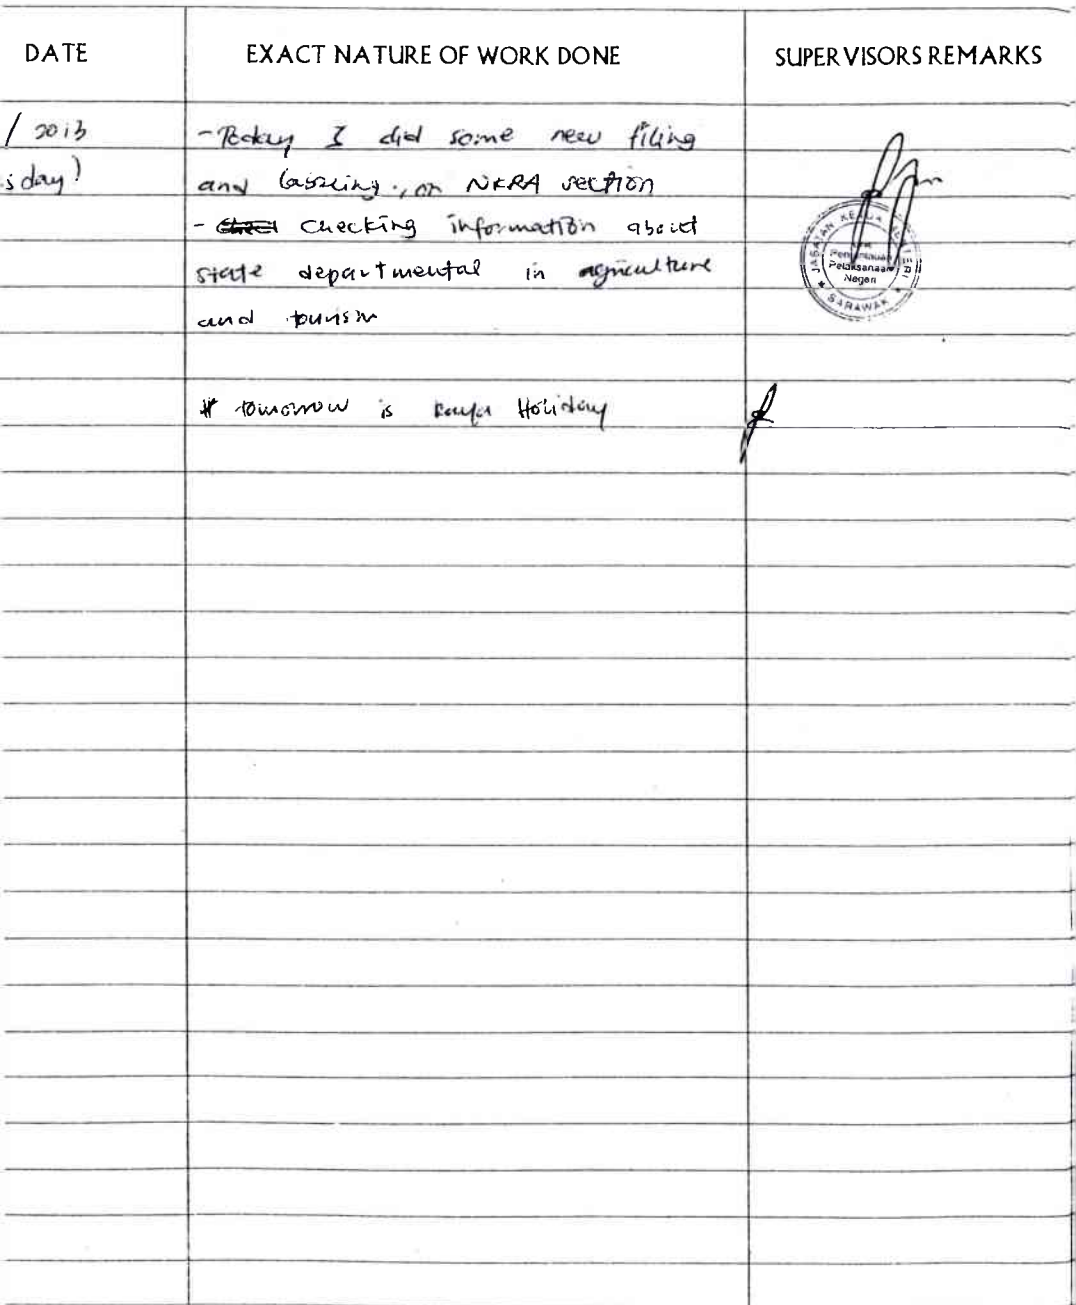 DATE EXACT NATURE OF WORK DONE SUPERVISORS REMARKS
/ 2013 - Today I did some new filing
sday) and labeling, on NKRA section
- checking information about
state departmental in agriculture
and tourism
# tomorrow is Raya Holiday
JABATAN KETUA MENTERI
Pelaksanaan
Negeri
SARAWAK